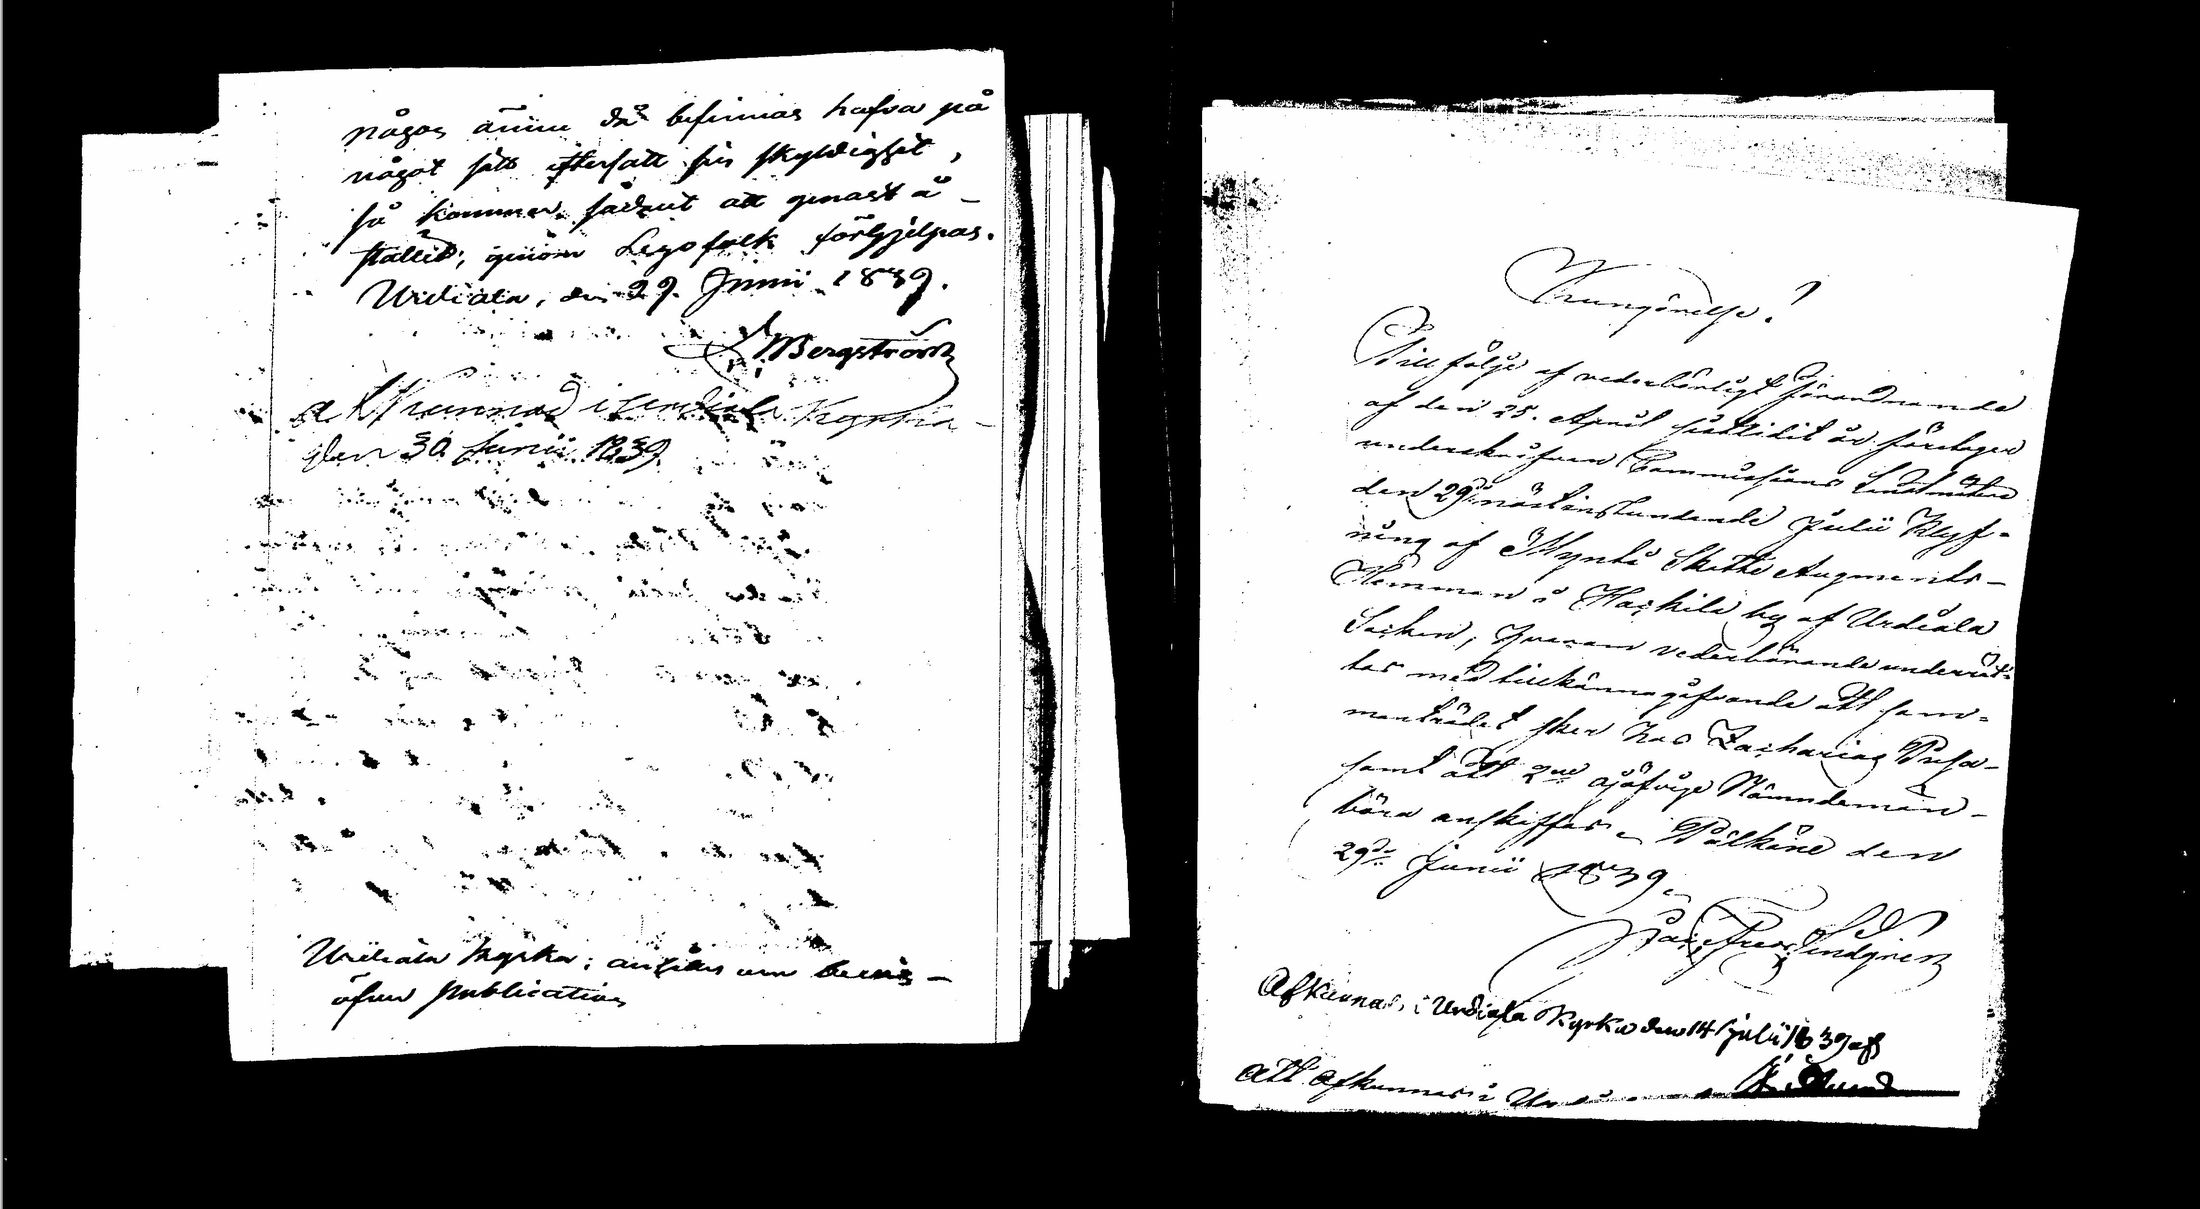 någon ännu då befinnas hafva på
något sätt eftersatt sin skyldighet,
så kommer sådant att genast å
stället, genom Legofolk förhjelpas.
Urdiala, den 29. Junii 1839.
Bergström
afkunnad i Urdiala Kyrka
den 30 Junii 1839
Urdiala Kyrka; anhålles om bevis
öfver publication
Kungörelse!
Till följe af vederbörligt förordnande
af den 25. April sistlidit år företager
underskrifven Commissions Landtmätare
den 29de nästinstundande Julii Klyf-
ning af Mynti Skatte Augments-
Hemman i Hackila by af Urdiala
Socken; hvarom vederbörande underrät-
tas med tillkännagifvande att sam-
manträdet sker hos Zacharias
samt att 2ne ojäfvige Nämndemän
böra anskaffas. Pälkäne den
29de Junii 1839.
Lindgren
Afkunnas i Urdiala Kyrka den 14 Julii 1839 af
Att afkunnas i